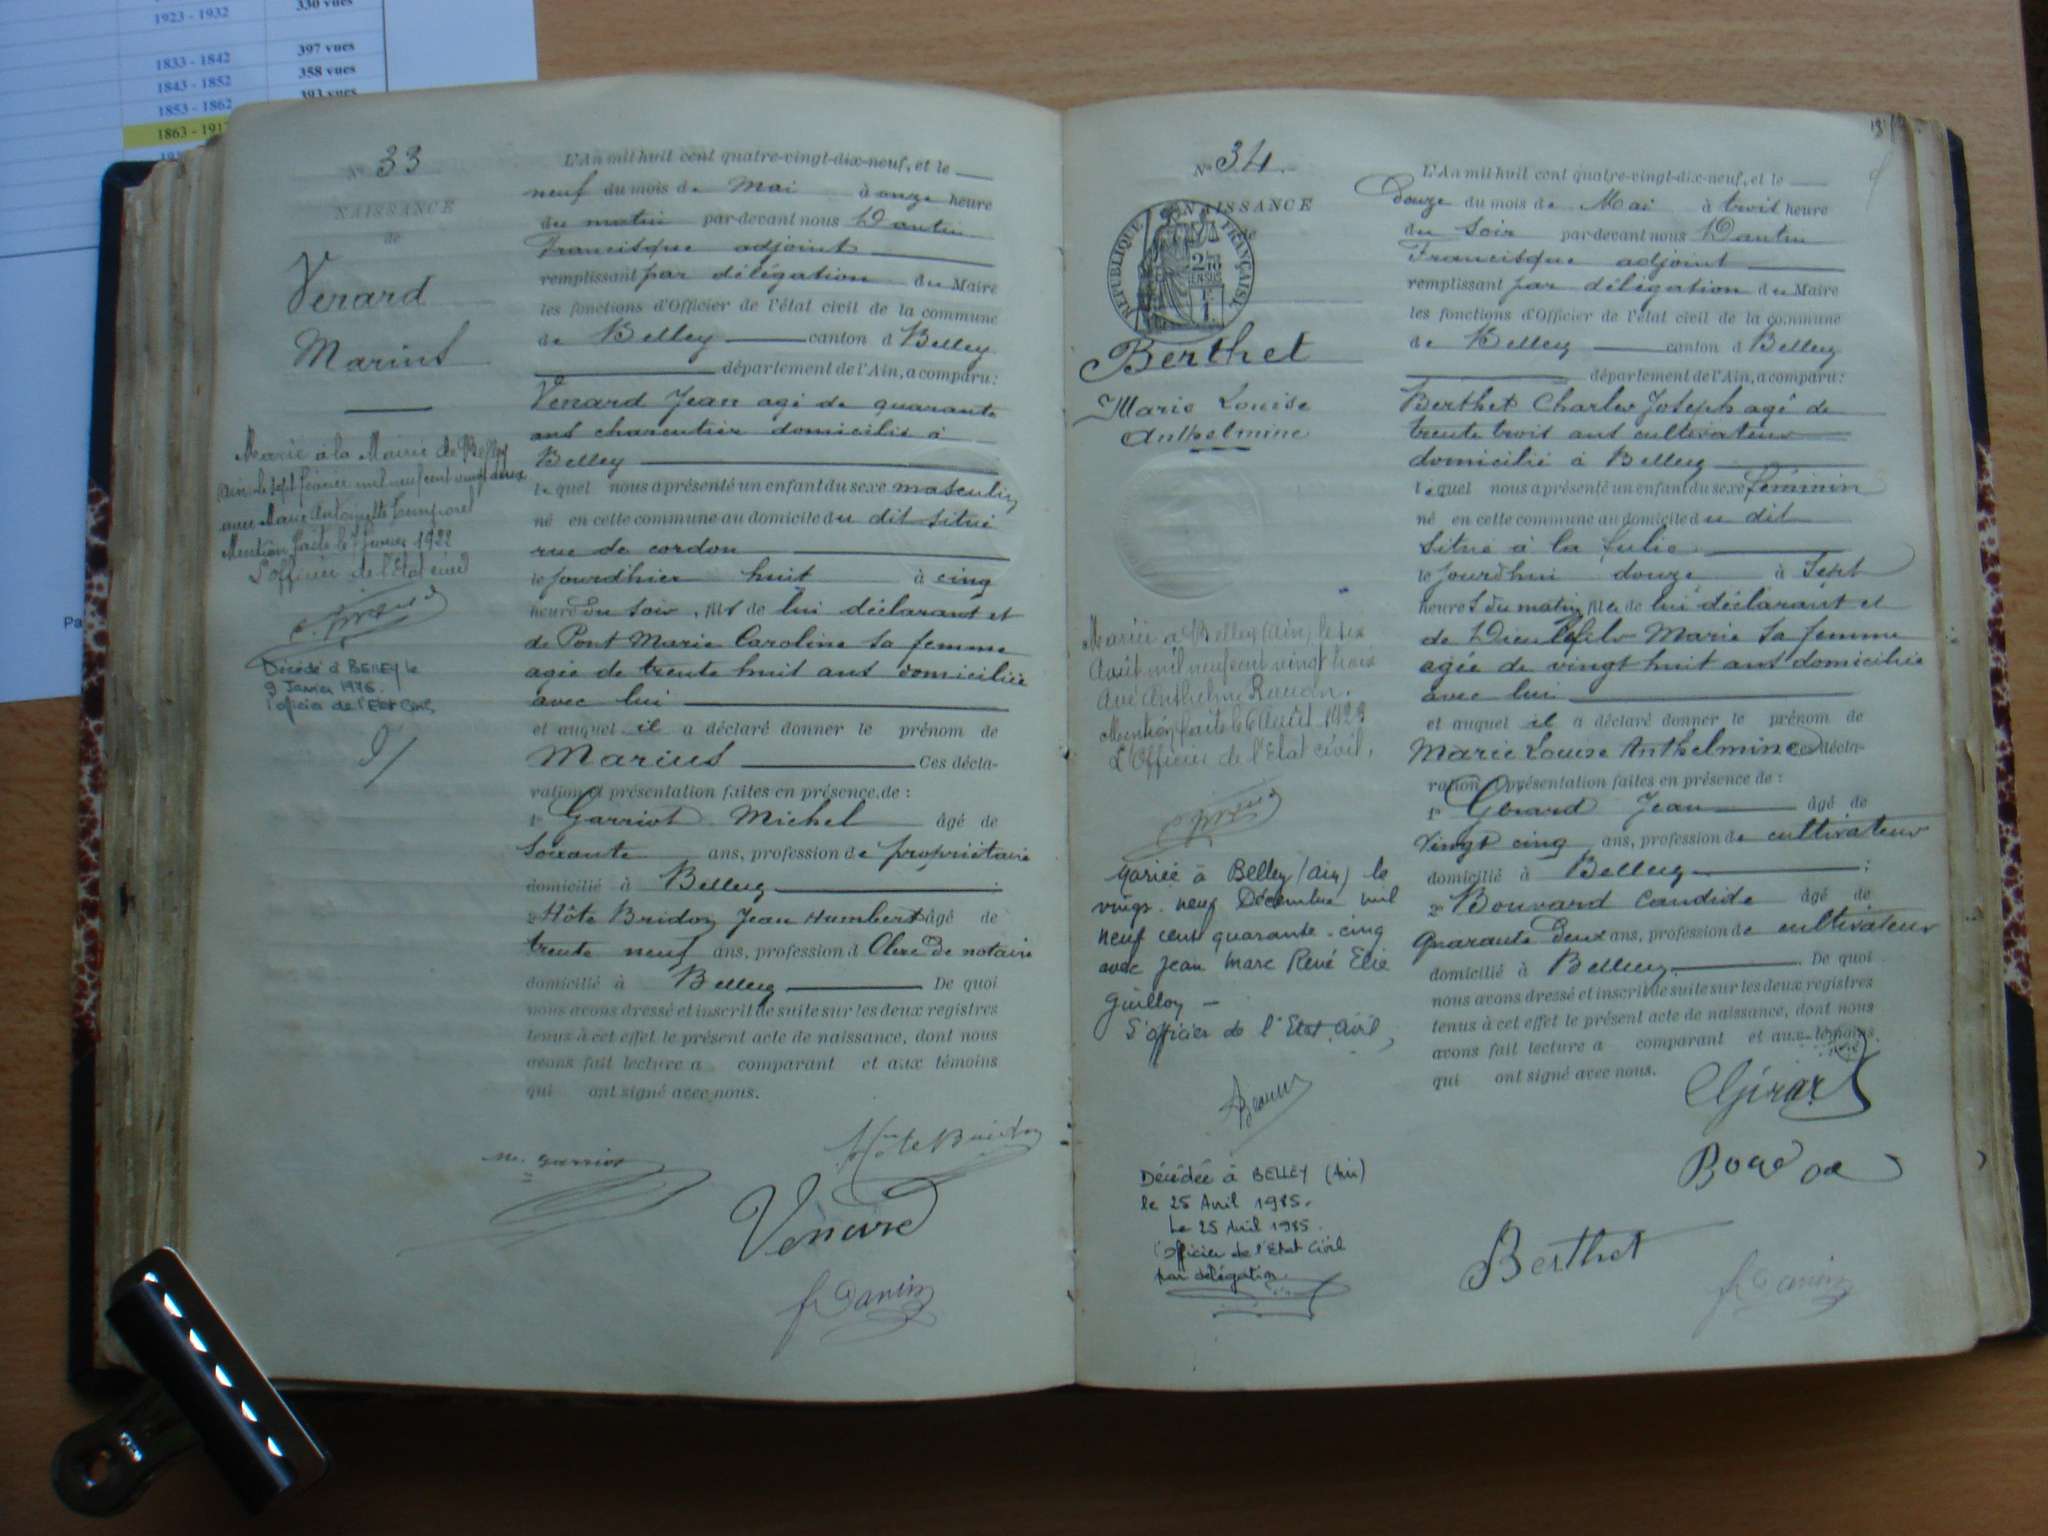 1923 - 1932 330 vues
1833 - 1842 397 vues
1843 - 1852 358 vues
1853 - 1862 393 vues
1863 - 191
Pa
N° 33
NAISSANCE
de
Verard
Marius
Marié à la Mairie de Belley
Ain le sept février mil neuf cent vingt deux
avec Marie Antoinette
Mention faite le 7 février 1922
L'officier de l'Etat civil
Décédé à BELLEY le
9 Janvier 1976.
l'officier de l'Etat Civil
L'An mil huit cent quatre-vingt-dix-neuf, et le
neuf du mois de Mai à onze heure
du matin par-devant nous Dantin
Francisque adjoint
remplissant par délégation du Maire
les fonctions d'Officier de l'état civil de la commune
de Belley canton d Belley
département de l'Ain, a comparu:
Venard Jean agé de quarante
ans charcutier domicilié à
Belley
lequel nous a présenté un enfant du sexe masculin
né en cette commune au domicile du dit situé
rue de cordon
le jourdhier huit à cinq
heure du soir, fils de lui déclarant et
de Pont Marie Caroline sa femme
agée de trente huit ans domiciliée
avec lui
et auquel il a déclaré donner le prénom de
Marius Ces décla-
ration et présentation faites en présence de :
1° Garriot Michel âgé de
Soixante ans, profession de propriétaire
domicilié à Belley
2° Hôte Bridon Jean Humbert âgé de
trente neuf ans, profession d Clerc de notaire
domicilié à Belley De quoi
nous avons dressé et inscrit de suite sur les deux registres
tenus à cet effet le présent acte de naissance, dont nous
avons fait lecture a comparant et aux témoins
qui ont signé avec nous.
Hôte Bridon
M. Garriot
Venard
F Dantin
N° 34
NAISSANCE
de
REPUBLIQUE FRANÇAISE
2/10
EN SUS
1F
Berthet
Marie Louise
Anthelmine
Mariée à Belley (Ain) le six
Août mil neuf cent vingt trois
avec Anthelme
Mention faite le 6 Août 1923
L'Officier de l'Etat civil,
Mariée à Belley (Ain) le
vingt neuf Décembre mil
neuf cent quarante-cinq
avec Jean Marc René Elie
Guilloy -
L'officier de l'Etat Civil,
Décédée à BELLEY (Ain)
le 25 Avril 1985.
Le 25 Avril 1985.
l'officier de l'Etat Civil
par délégation.
L'An mil huit cent quatre-vingt-dix-neuf, et le
Douze du mois de Mai à trois heure
du soir par-devant nous Dantin
Francisque adjoint
remplissant par délégation du Maire
les fonctions d'Officier de l'état civil de la commune
de Belley canton d Belley
département de l'Ain, a comparu:
Berthet Charles Joseph agé de
trente trois ans cultivateur
domicilié à Belley
lequel nous a présenté un enfant du sexe féminin
né en cette commune au domicile du dit
situé à la
le jourdhui douze à sept
heures du matin, fille de lui déclarant et
de Dieulefils Marie sa femme
agée de vingt huit ans domiciliée
avec lui
et auquel il a déclaré donner le prénom de
Marie Louise Anthelmine Ces décla-
ration et présentation faites en présence de :
1° Gérard Jean âgé de
vingt cinq ans, profession de cultivateur
domicilié à Belley ;
2° Bouvard Candide âgé de
quarante deux ans, profession de cultivateur
domicilié à Belley De quoi
nous avons dressé et inscrit de suite sur les deux registres
tenus à cet effet le présent acte de naissance, dont nous
avons fait lecture a comparant et aux témoins
qui ont signé avec nous.
Berthet
F Dantin